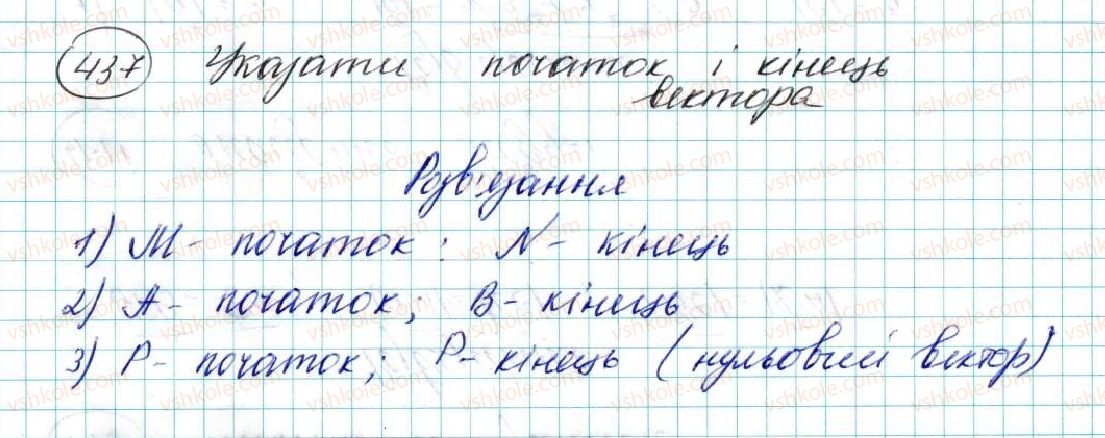 437 Указати початок і кінець
вектора
Розв'язання
1) M - початок : N - кінець
2) A - початок; B - кінець
3) P - початок; P - кінець (нульовий вектор)